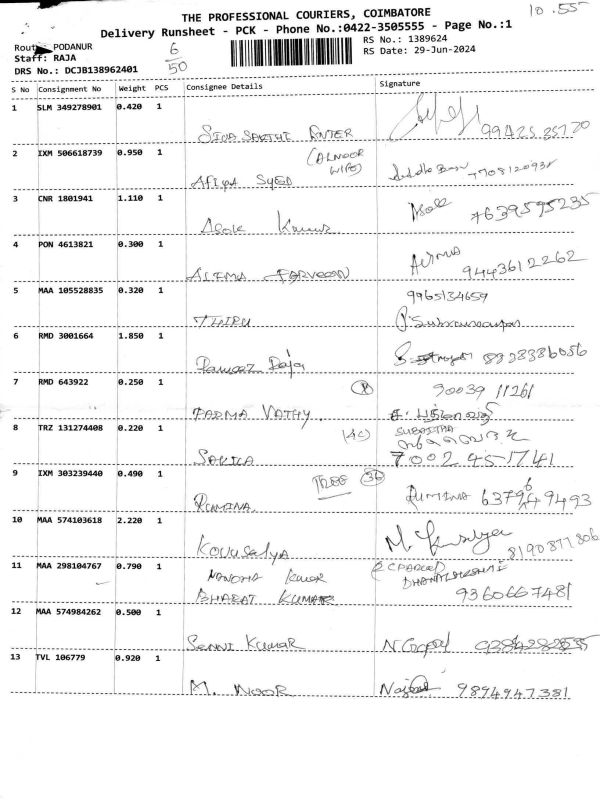 THE PROFESSIONAL COURIERS, COIMBATORE
10.55
Delivery Runsheet - PCK - Phone No.:0422-3505555 - Page No.:1
Route: PODANUR
6
50
RS No.: 1389624
Staff: RAJA
RS Date: 29-Jun-2024
DRS No.: DCJB138962401
S No Consignment No Weight PCS Consignee Details Signature
1 SLM 349278901 0.420 1
SIVA SAKTHI ENTER
2 IXM 506618739 0.950 1
(ALNOOR
WIFE)
AFIYA SYED
3 CNR 1801941 1.110 1
Alok Kumar 7639595235
4 PON 4613821 0.300 1
ALEMA FARVEEN 9443612262
5 MAA 105528835 0.320 1
9965134659
THIRU
6 RMD 3001664 1.850 1
Raja
7 RMD 643922 0.250 1
90039 11261
PADMA VATHY
8 TRZ 131274408 0.220 1
(4C)
9 IXM 303239440 0.490 1
36
RUMINA RUMINA
10 MAA 574103618 2.220 1
Kowsalya 8190877806
11 MAA 298104767 0.790 1
NANDHA Kumar
DHANALAKSHMI
BHARAT KUMAR 9360667481
12 MAA 574984262 0.500 1
SENNI KUMAR N Gopal
13 TVL 106779 0.920 1
M. NOOR 9894947381